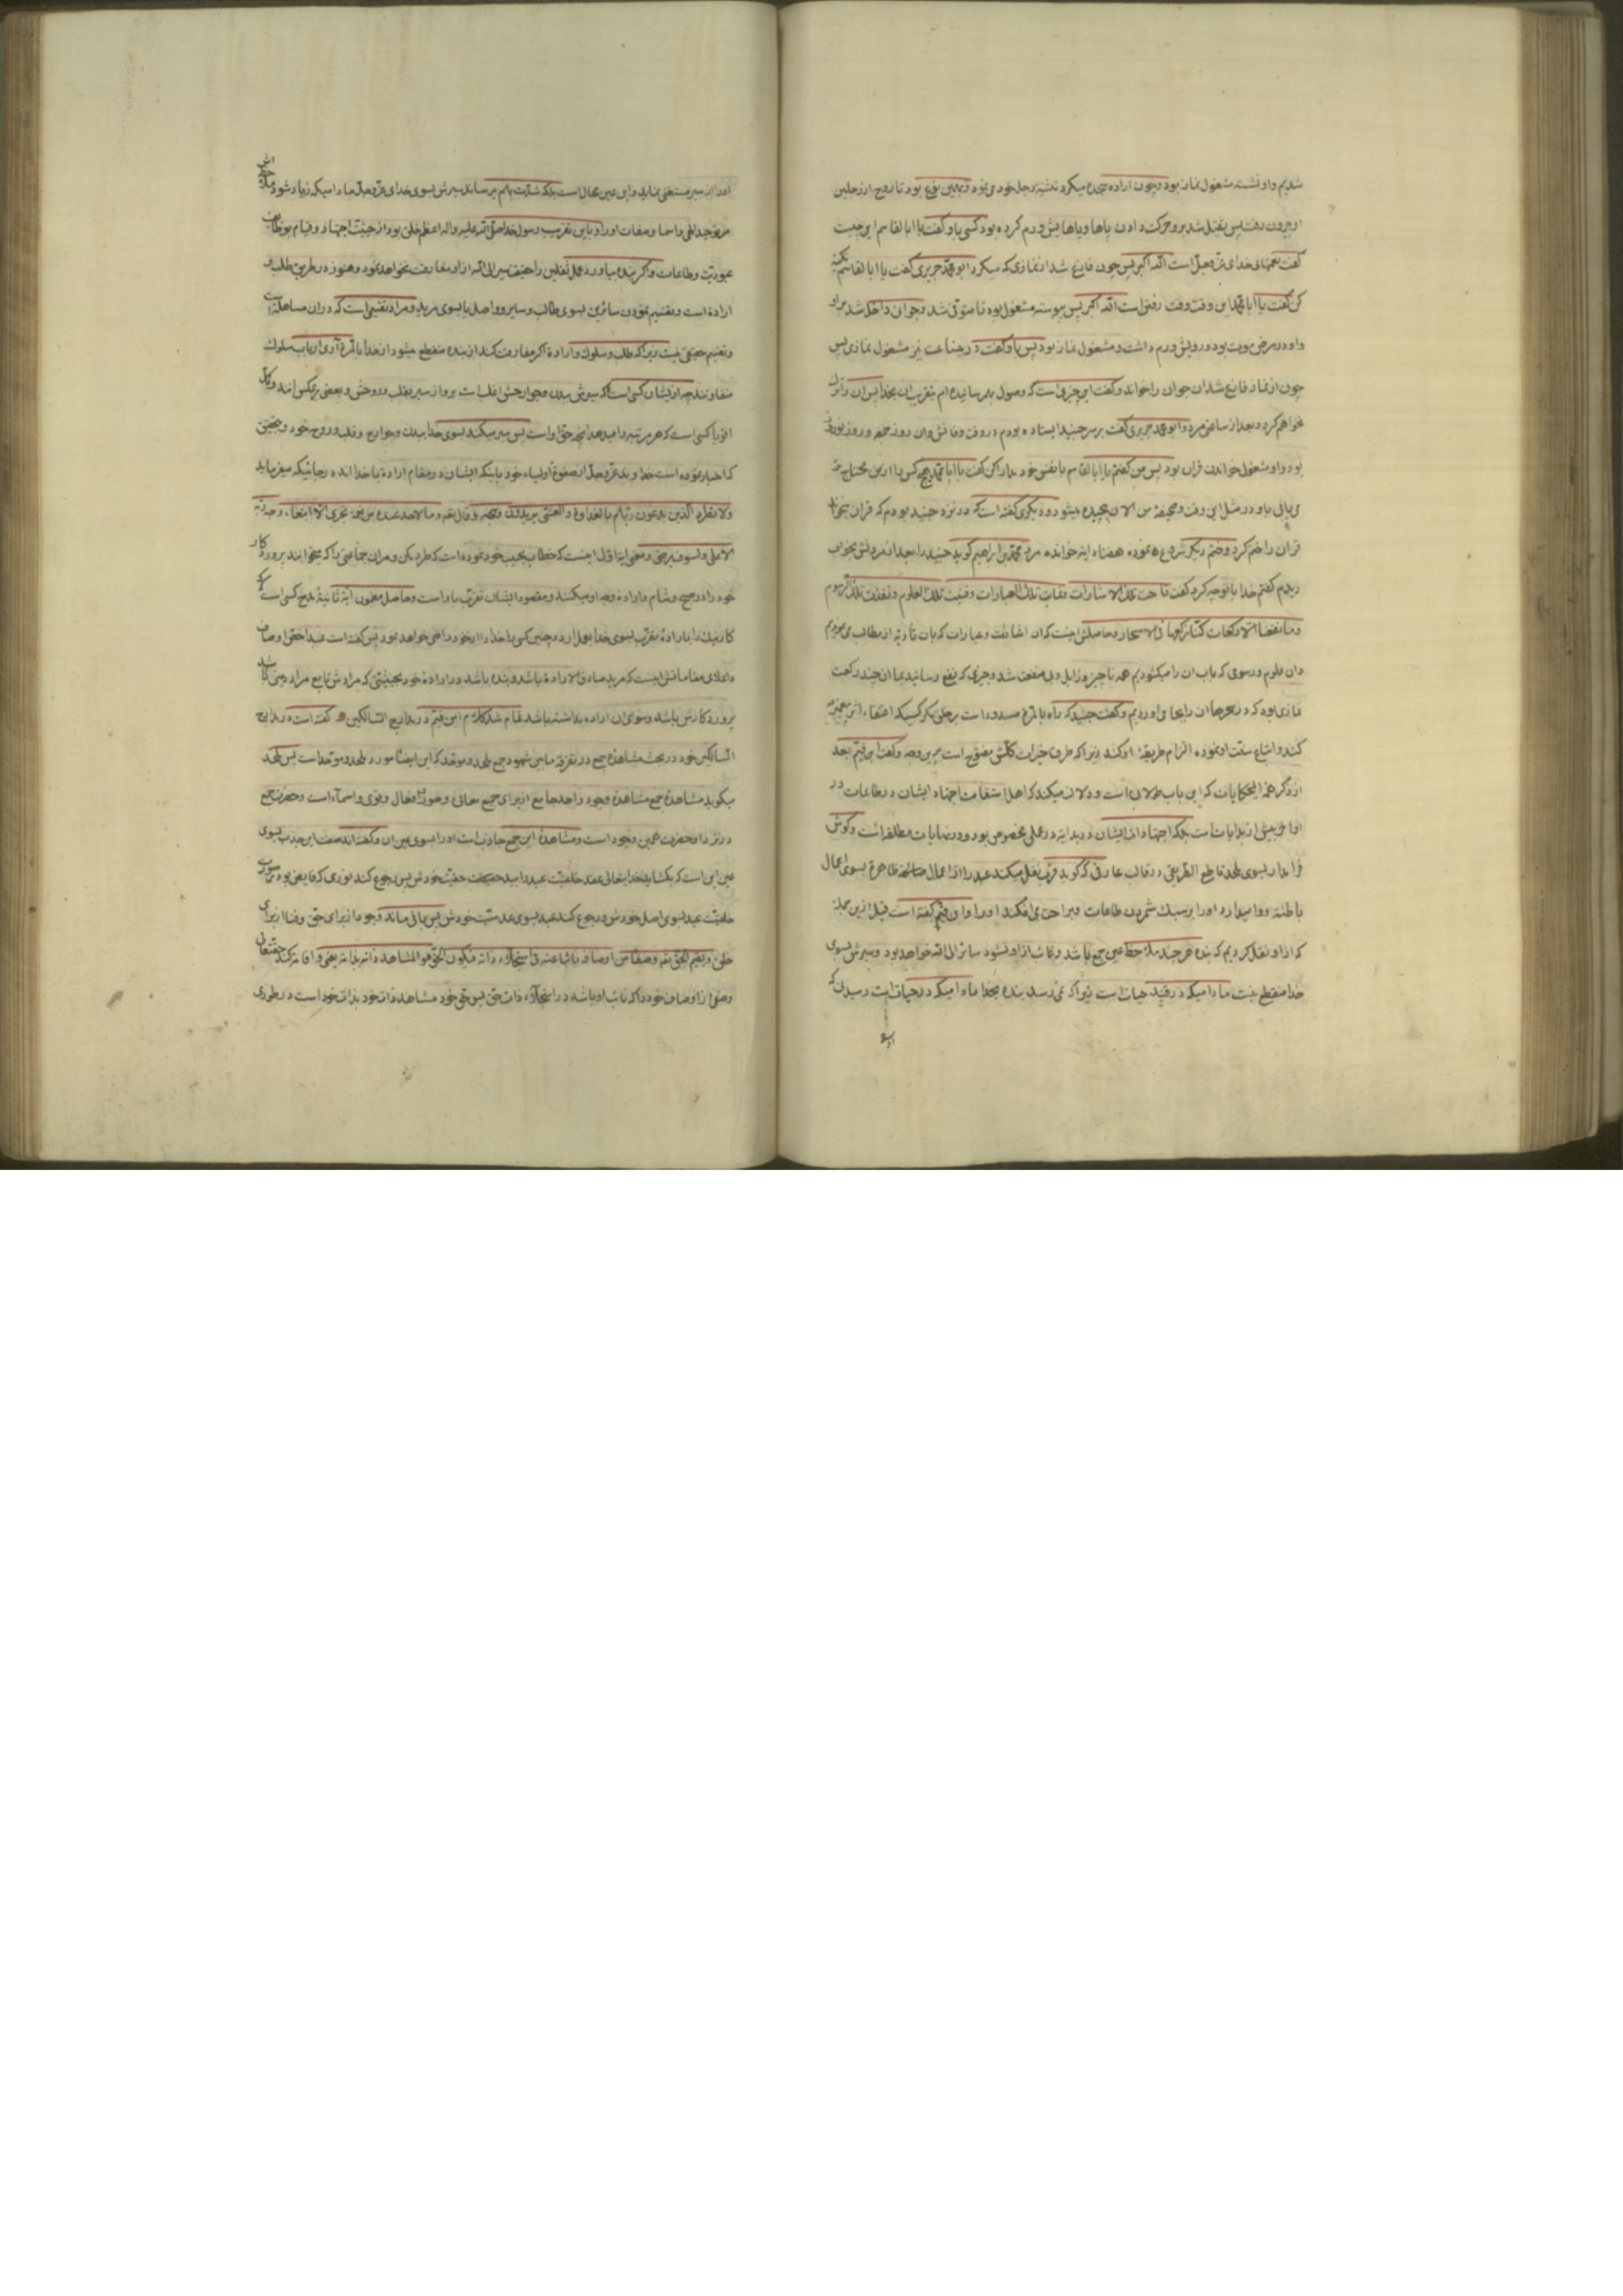 شدیم و او نشسته مشغول نماز بود و چون اراده سجده میکرد تثنیه رجل خود می نمود و بهمین نهج بود تا روح از رجلین
او بیرون رفت پس ثقیل شد بر او حرکت دادن پاها و پاهایش ورم کرده بود کسی باو گفت یا ابا القاسم این چیست
گفت نعمتهای خدای عز و جل است الله اکبر پس چون فارغ شد از نمازی که میکرد ابو محمد جریری گفت یا ابا القاسم تکیه
کن گفت یا ابا محمد این وقت وقت رفتن است الله اکبر پس پیوسته مشغول بود تا متوفی شد و جوانی داخل شد بر او
و او در مرض موت بود و رویش ورم داشت و مشغول نماز بود پس باو گفت در همین ساعت نیز مشغول نمازی پس
چون از نماز فارغ شد ان جوان را خواند و گفت این چیزی است که وصول بهم رسانیده ام بتقرب ان بخدا پس ان را ترک
نخواهم کرد و بعد از ساعتی مرد و ابو محمد جریری گفت بر سر جنید ایستاده بودم در وقت وفاتش و ان روز جمعه و روز نوروز
بود و او مشغول خواندن قران بود پس من گفتم یا ابا القاسم با نفس خود مدارا کن گفت یا ابا محمد هیچ کس را ازین محتاج تر
می یابی باو در مثل این وقت و صحیفه من الان پیچیده میشود و دیگری گفته است که در نزد جنید بودم که قران
قران را ختم کرد و ختم دیگر شروع نموده هفتاد ایه خوانده مرد محمد بن ابراهیم گوید جنید را بعد از مردنش بخواب
دیدم گفتم خدا با تو چه کرد گفت تاحت تلک الاشارات و غابت تلک العبارات و فنیت تلک العلوم و نفدت تلک الرسوم
و ما نفعنا الا رکعات کنا نرکعها فی الاسحار و حاصلش اینست که ان اشارات و عبارات که بان تادیه از مطالب می نمودیم
و ان علوم و رسومی که باب ان را میگشودیم همه ناچیز و زایل و بی منفعت شد و چیزی که نفع رسانید بما ان چند رکعت
نمازی بود که در سحرها ان را بجا می اوردیم و گفت جنید که راه بالمرة مسدود است بر خلق مگر کسیکه اقتفاء اثر پیغمبر
کند و اتباع سنت او نموده الزام طریقه او کند زیرا که طرق خیرات کلش مفتوح است بر وجه و گفت ابن قیم بعد
از ذکر همه این حکایات که این باب طولانی است و دلالت میکند که اهل استقامت اجتهاد ایشان در طاعات در
اواخر بیش از بدایات است بلکه اجتهاد ایشان در بدایت در عملی مخصوص بود و در نهایات مطلقا است و گوش
فرا مدار بسوی ملحد قاطع الطریقی در قالب عارفی که گوید قرب نقل میکند عبد را از اعمال ظاهره بسوی اعمال
باطنه و وا میدارد او را بر سبک شمردن طاعات و براحت می افکند او را و ابن قیم گفته است قبل ازین بجمله
که از او نقل کردیم که بنده هر چند ملاحظ عین جمع باشد و غائب از او نشود سائر الی الله خواهد بود و سیرش بسوی
خدا منقطع نیست مادامیکه در قید حیات است زیرا که نمی رسد بنده بخدا مادامیکه در حیات است رسیدنی که
او را
او را از سیر مستغنی نماید و این عین محال است بلکه شدت بهم می رساند سیرش بسوی خدای عز و جل مادامیکه زیاد شود ملاحظه اش
مر توحید الهی و اسما و صفات او را و باین تقریب رسول خدا صلی الله علیه و اله اعظم خلق بود از حیثیت اجتهاد و قیام بوظایف
عبودیت و طاعات و اگر بنده بیاورد عمل ثقلین را حقیقت سیر الی الله از او مفارقت نخواهد نمود و هنوز در طریق طلب و
ارادة است و تقسیم نمودن سائرین بسوی طالب و سایر و واصل یا بسوی مرید و مراد تقسیمی است که در ان مساهله است
و تقسیم حقیقی نیست زیرا که طلب و سلوک و ارادة اگر مفارقت کند از بنده منقطع میشود از خدا بالمرة آری ارباب سلوک
متفاوتند چه از ایشان کسی است که سیرش ببدن و جوارحش اغلب است بر او از سیر بقلب و روحش و بعضی بر عکس انند و کل
اقویا کسی است که هر مرتبه را میدهد انچه حق او است پس سیر میکند بسوی خدا ببدن و جوارح و قلب و روح خود و بتحقیق
که اخبار نموده است خداوند عز و جل از صفوة اولیاء خود باینکه ایشان در مقام ارادة با خدا اند هر جائیکه میفرماید
ولا تطرد الذین یدعون ربهم بالغداوة والعشی یریدون وجهه و قال تعالی وما لاحد عنده من نعمة تجزی الا ابتغاء وجه ربه
الاعلی ولسوف یرضی و معنی ایه اول اینست که خطاب بحبیب خود نموده است که طرد مکن و مران جماعتی را که میخوانند پروردگار
خود را در صبح و شام و ارادة وجه او میکنند و مقصود ایشان تقرب باو است و حاصل مضمون ایه ثانیه مدح کسی است که
کار نیک را بارادة تقرب بسوی خدا بعمل ارد و چنین کسی را خدا از خود راضی خواهد نمود پس گفته است عبد اخص اوصاف
و اعلای مقاماتش اینست که مرید صادق الارادة باشد و بنده باشد در ارادة خود بحیثیتی که مرادش تابع مراد دینی
پروردگارش باشد و سوای ان اراده نداشته باشد تمام شد کلام ابن قیم در مدارج السالکین و گفته است در مدارج
السالکین خود در بحث مشاهدة جمع در تفرقه مابین شهود جمع ملحد و موحد که این ایضا مورد ملحد و موحد است پس ملحد
میگوید مشاهدة جمع مشاهدة وجود واحد جامع از برای جمیع معانی و صور و افعال و قوی و اسماء است و حضرت جمع
در نزد او حضرت همین وجود است و مشاهدة این جمع جاذب است او را بسوی عین ان و گفته اند صفت این جذب بسوی
عین این است که بگشاید خدایتعالی عقد خلقیت عبد را بید حقیقت حقیت خودش پس رجوع کند نوری که فایض بود بر صورت
خلقیت عبد بسوی اصل خودش و رجوع کند عبد بسوی عدمیت خودش پس باقی ماند وجود از برای حق و فنا از برای
خلق و یقیم الحق تعم وصفا من اوصافه نائبا عنه فی استجلاء ذاته فیکون الحق هو المشاهد ذاته بذاته یعنی و اقامه کند حقتعالی
وصفی از اوصاف خود را که نائب او باشد در استجلاء ذات حق پس حق خود مشاهد ذات خود بذات خود است در طوری